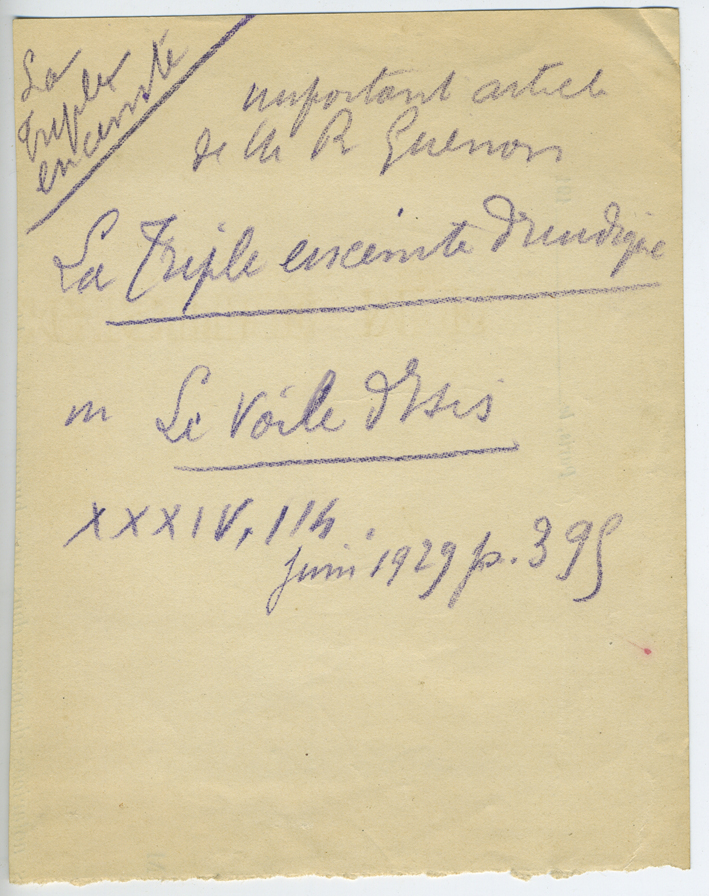 La
Triple
enceinte
important article
de Mr R Guenon
La Triple enceinte Druidique
in Le Voile d'Isis
XXXIV, 114
juin 1929 p. 395